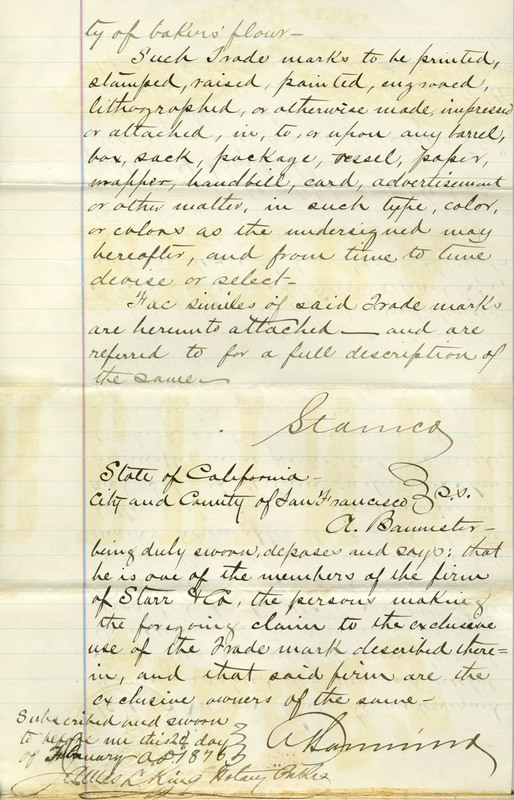 ty of bakers' flour—
Such Trade marks to be printed,
stamped, raised, painted, engraved,
lithographed, or otherwise made, impressed
or attached, in, to, or upon any barrel,
box, sack, package, vessel, paper,
wrapper, handbill, card, advertisement
or other matter, in such type, color,
or colors as the undersigned may
hereafter, and from time to time
devise or select—
Fac similes of said Trade marks
are hereunto attached — and are
referred to for a full description of
the same—
Starr & Co
State of California
City and County of San Francisco } s.s.
A. Bannister—
being duly sworn, deposes and says: that
he is one of the members of the firm
of Starr & Co, the persons making
the foregoing claim to the exclusive
use of the Trade mark described there=
in, and that said firm are the
exclusive owners of the same—
Subscribed and sworn
to before me this day
of February AD 1876
A Bannister
James L. King Notary Public